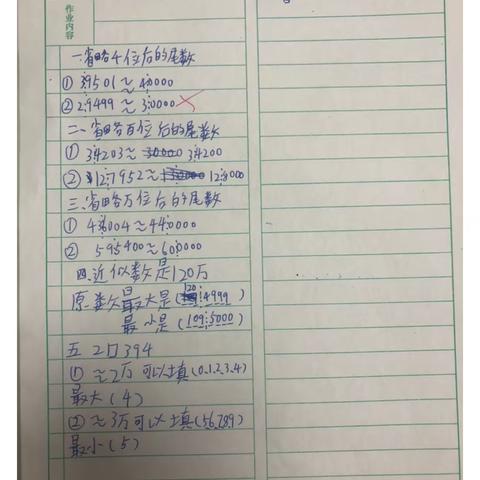 作业内容
一.省略千位后的尾数
① 39501≈40000
② 29499≈30000
二、省略百位后的尾数
① 34203≈30000 34200
② 127952≈130000 128000
三、省略万位后的尾数
① 43004≈440000
② 595400≈600000
四、近似数是120万
原数最大是(120 4999)
最小是(109 5000)
五 2口394
① ≈2万可以填(0.1.2.3.4)
最大(4)
② ≈3万可以填(56789)
最小(5)